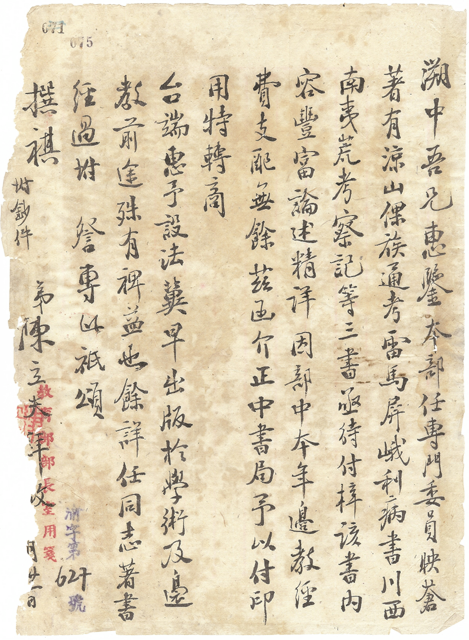 671
675
溯中吾兄惠鑒本部任專門委員映蒼
著有涼山倮族通考雷馬屏峨利病書川西
南夷荒考察記等三書亟待付梓該書內
容豐富論述精詳因部中本年邊教經
費支配無餘茲函介正中書局予以付印
用特轉商
台端惠予設法冀早出版於學術及邊
教前途殊有裨益也餘詳任同志著書
經過附箋專此祇頌
撰祺
附鈔件
弟陳立夫
月廿一日
教育部部長室用箋
字第624號